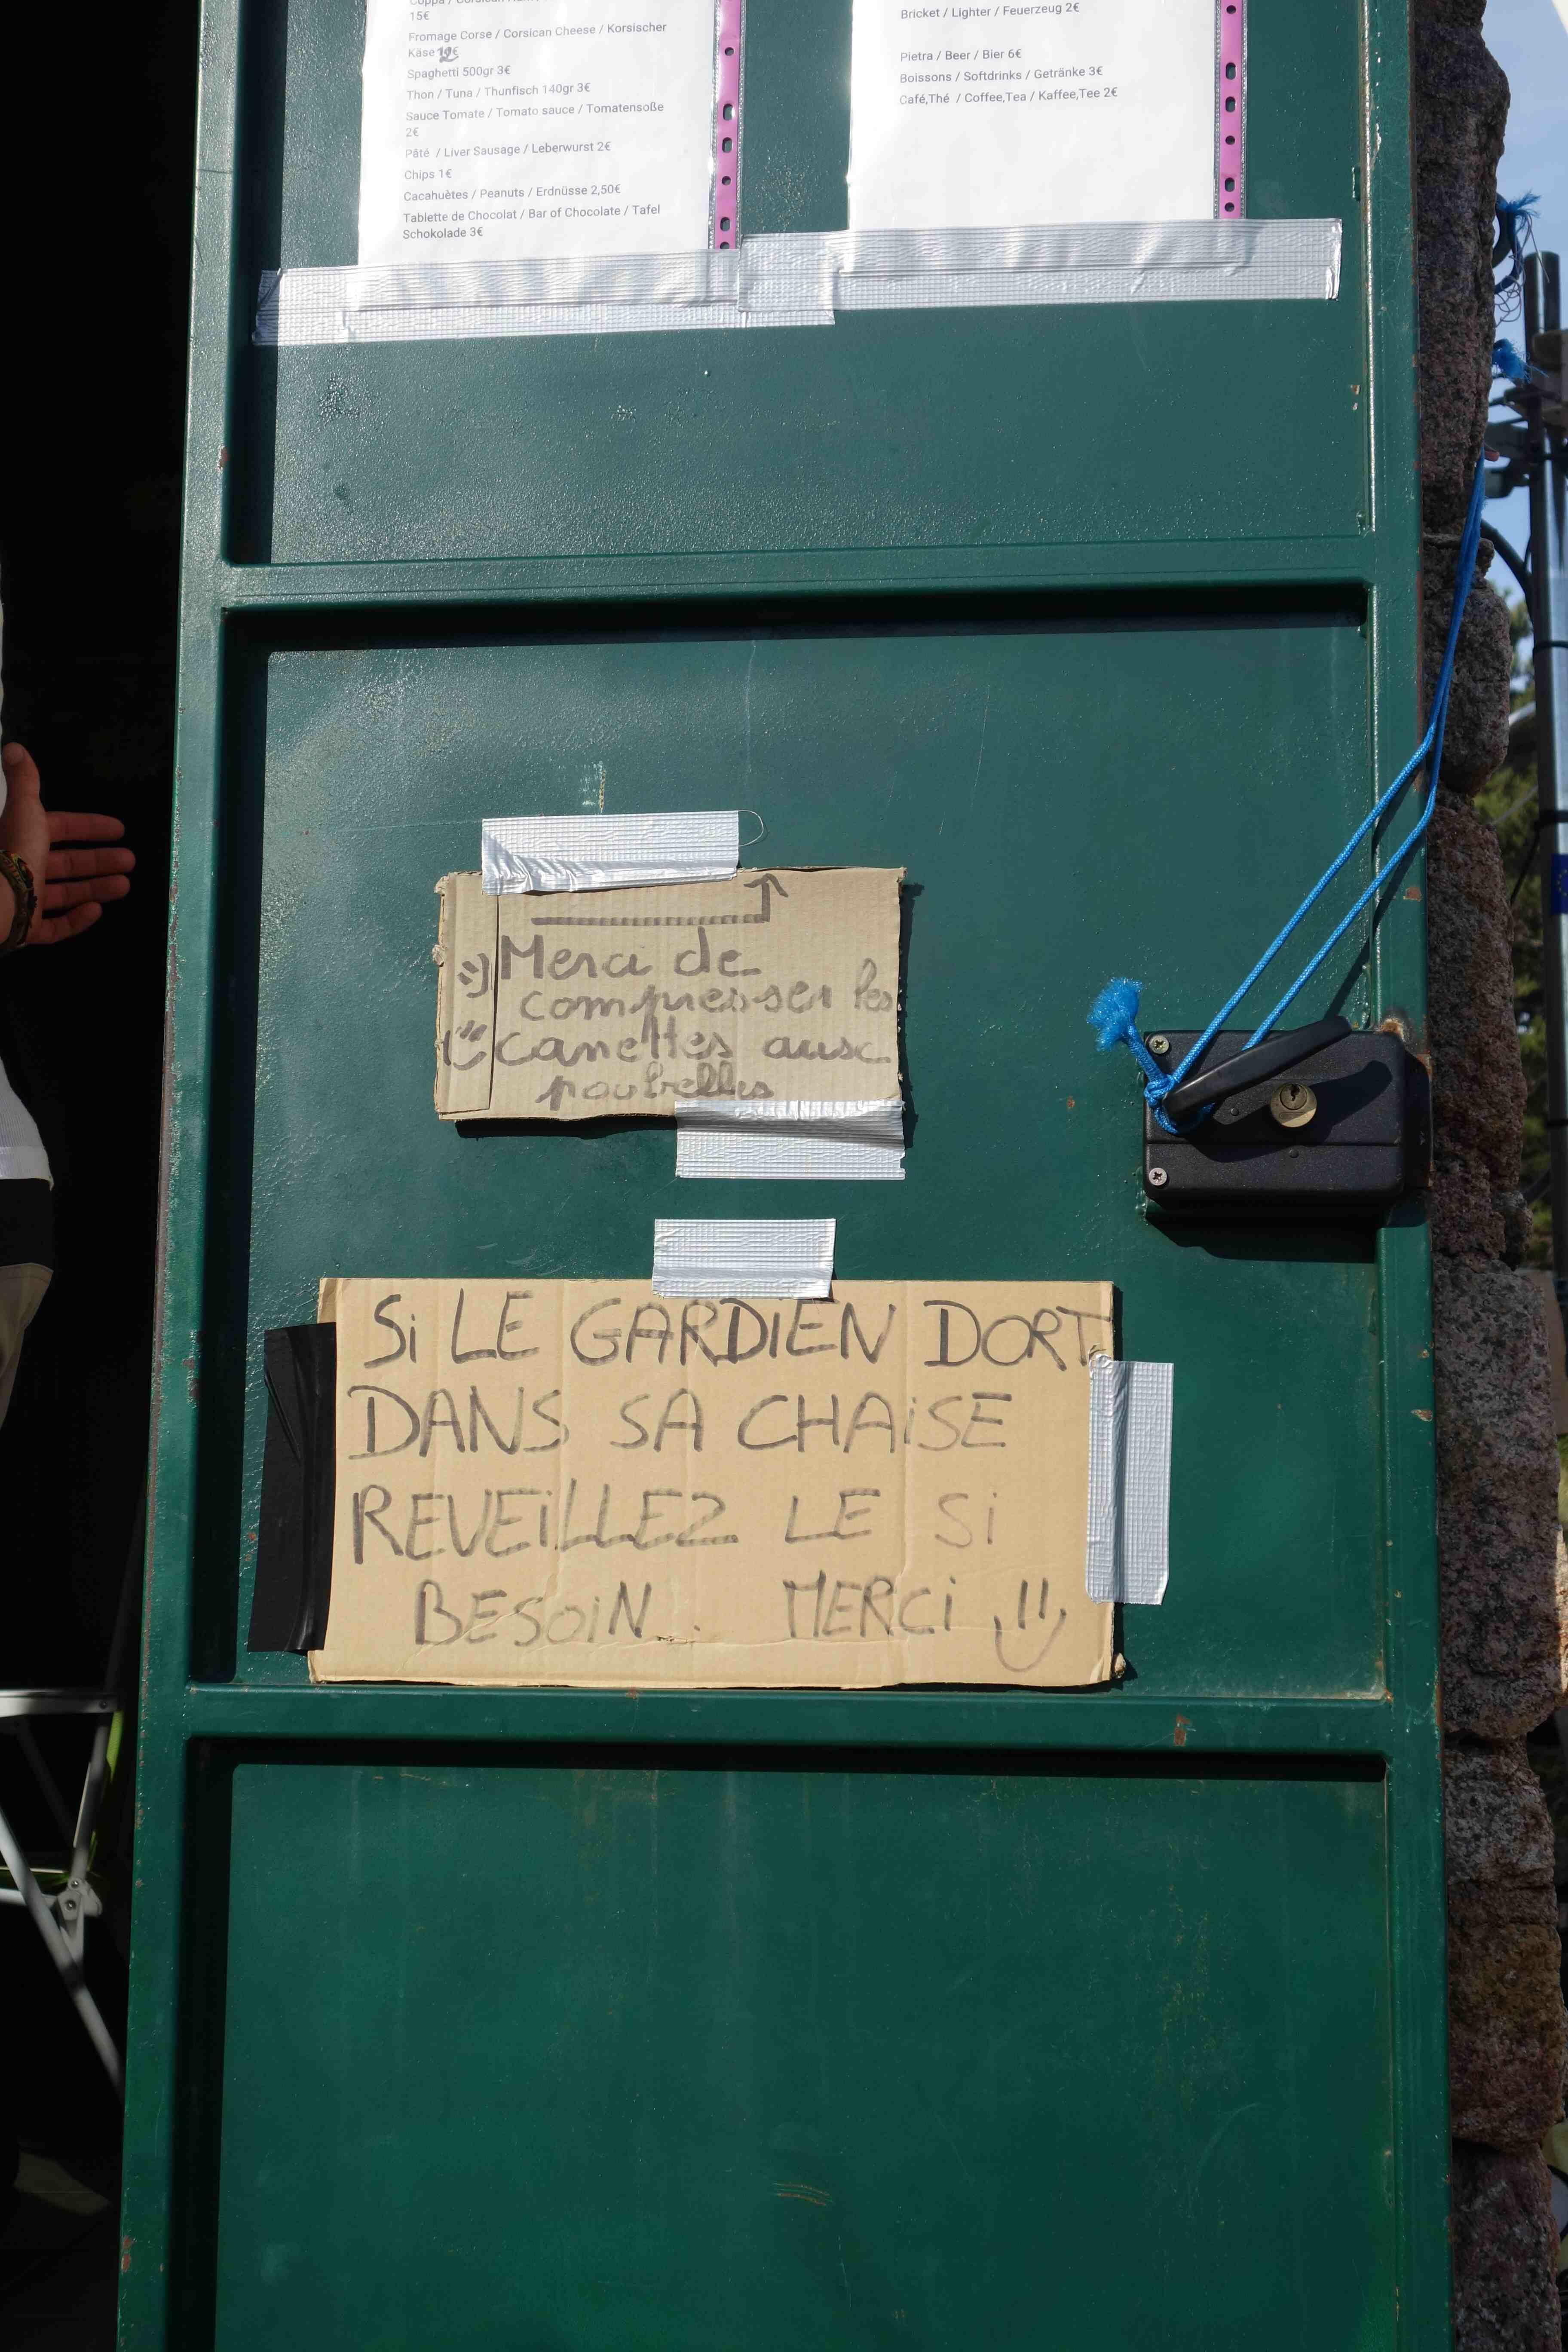 Coppa / Corsican
15€
Fromage Corse / Corsican Cheese / Korsischer
Käse 12€
Spaghetti 500gr 3€
Thon / Tuna / Thunfisch 140gr 3€
Sauce Tomate / Tomato sauce / Tomatensoße
2€
Pâté / Liver Sausage / Leberwurst 2€
Chips 1€
Cacahuètes / Peanuts / Erdnüsse 2,50€
Tablette de Chocolat / Bar of Chocolate / Tafel
Schokolade 3€
Bricket / Lighter / Feuerzeug 2€
Pietra / Beer / Bier 6€
Boissons / Softdrinks / Getränke 3€
Café,Thé / Coffee,Tea / Kaffee,Tee 2€
Merci de
compresser les
canettes aux
poubelles
Si LE GARDiEN DORT
DANS SA CHAiSE
REVEiLLEZ LE Si
BESOiN. MERCi